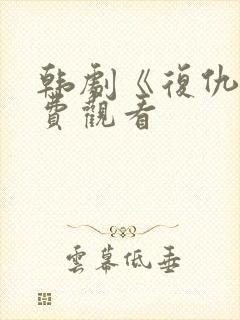 韩劇《復仇
費觀看
雲幕低垂